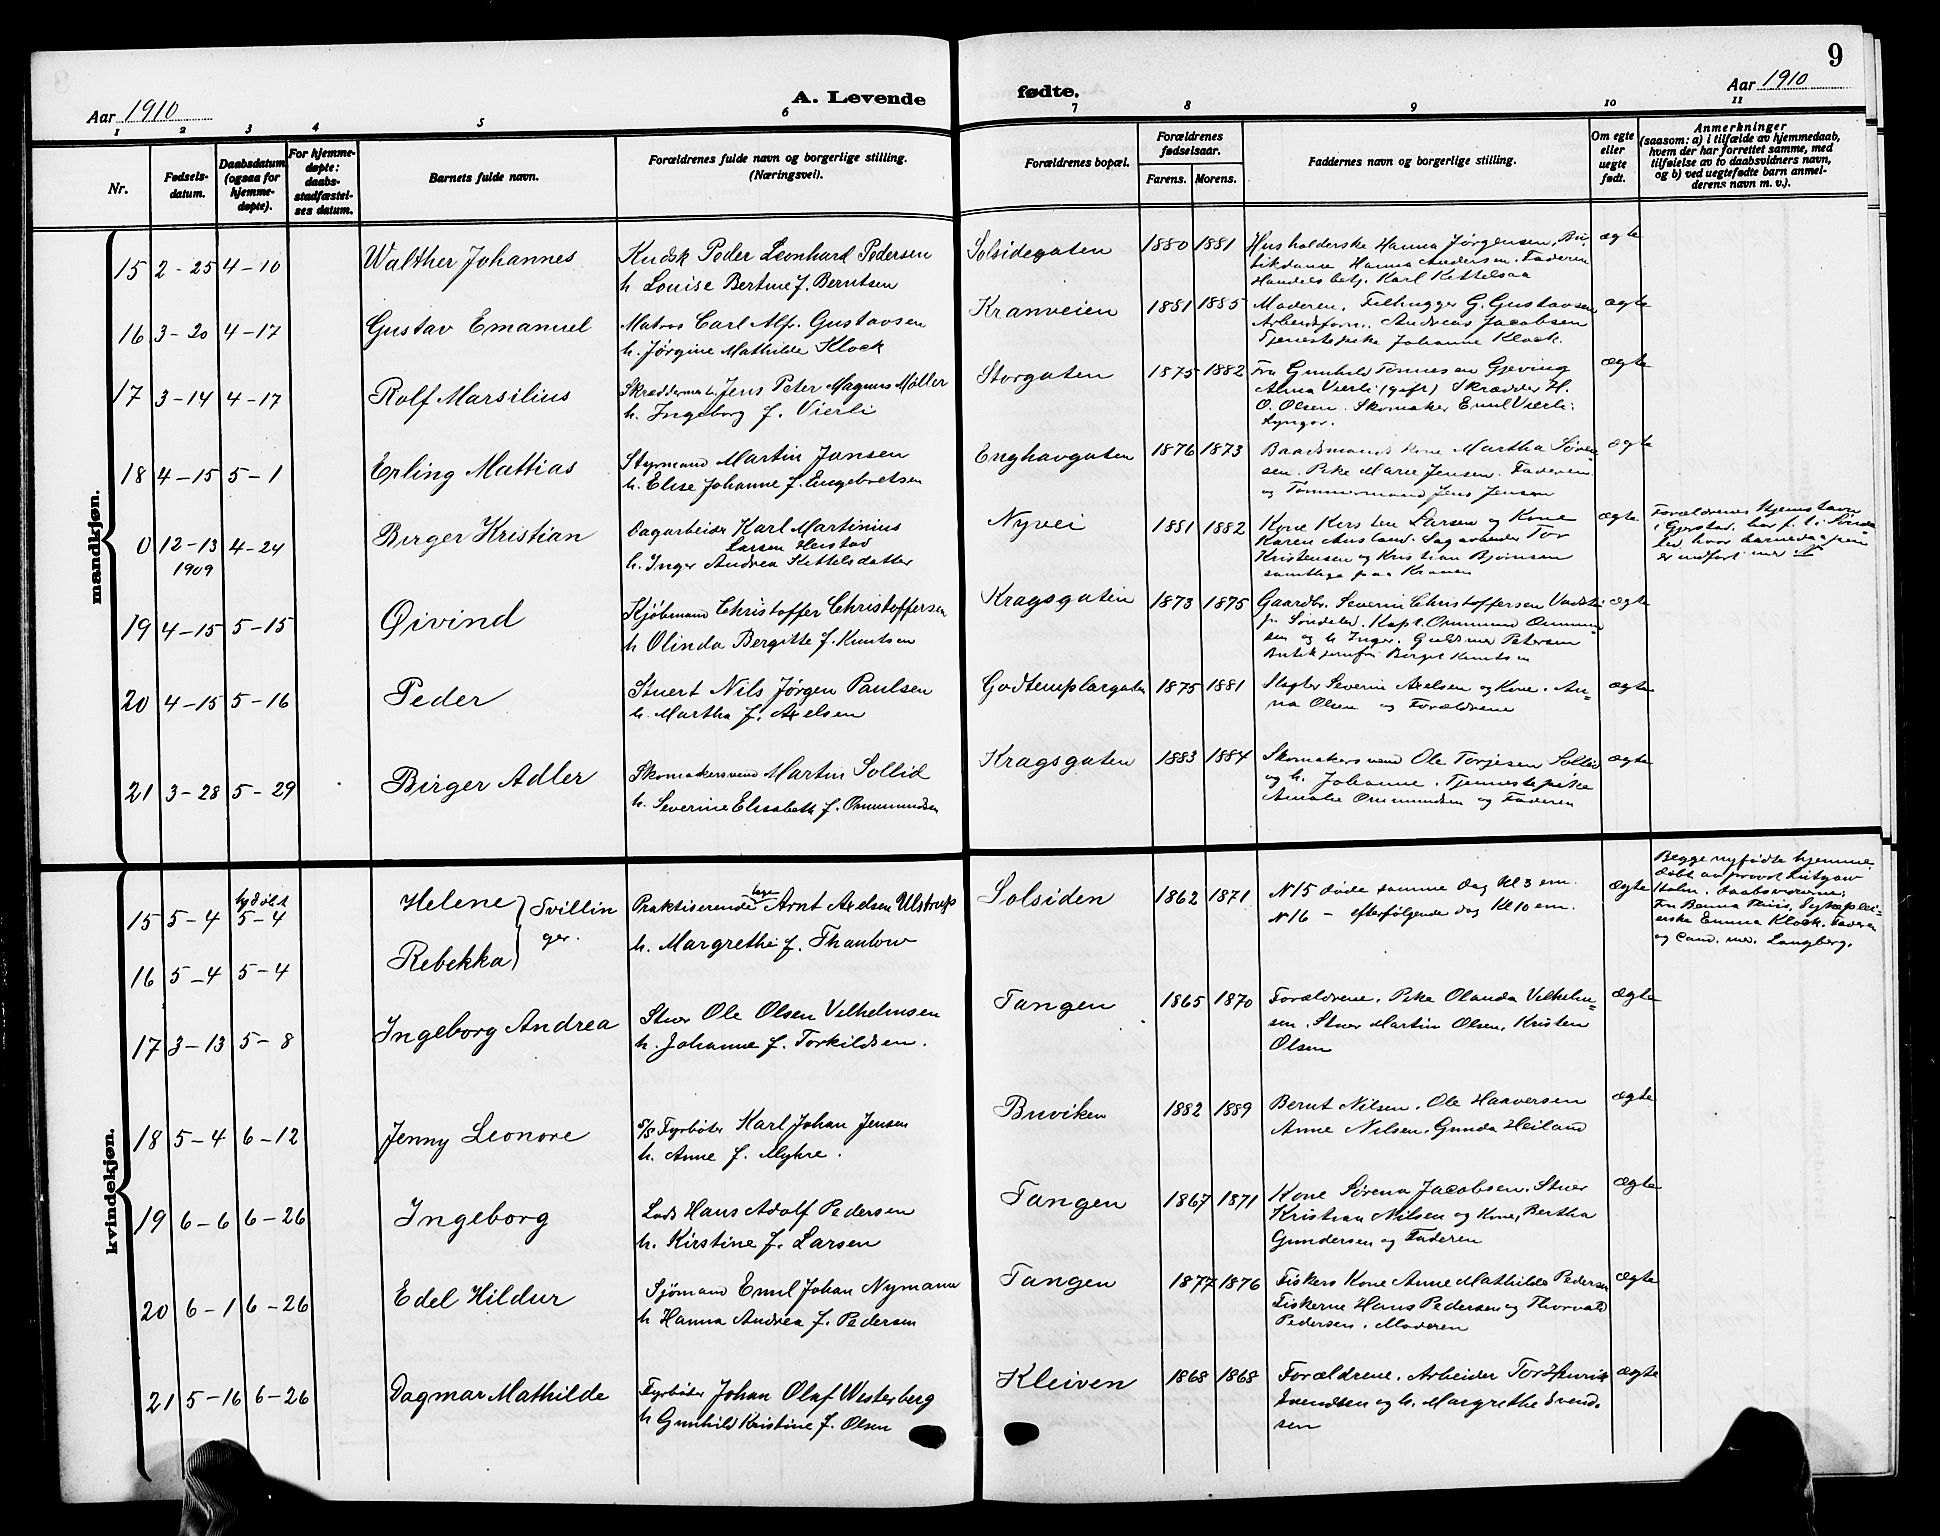 9
Aar 1910
A. Levende
fødte.
Aar 1910
1 2 3 4 5 6 7 8 9 10 11
Nr.
Fødsels-
datum.
Daabsdatum
(ogsaa for
hjemme-
døpte).
For hjemme-
døpte:
daabs-
stadfæstel-
ses datum.
Barnets fulde navn.
Forældrenes fulde navn og borgerlige stilling.
(Næringsvei).
Forældrenes bopæl.
Forældrenes
fødselsaar.
Farens. Morens.
Faddernes navn og borgerlige stilling.
Om egte
eller
uegte
født.
Anmerkninger
(saasom: a) i tilfælde av hjemmedaab,
hvem der har forrettet samme, med
tilføielse av to daabsvidners navn,
og b) ved uegtefødte barn anmel-
derens navn m. v.).
mandkjøn.
15 2-25 4-10 Walther Johannes
Kudsk Peder Leonhard Pedersen
h. Louise Bertine f. Berntsen
Solsidegaten 1880 1881
Husholderske Hanna Jørgensen, Bu-
tikdame Hanna Andersen. Faderen
Handelsbetj. Karl Kittelsaa
ægte
16 3-20 4-17 Gustav Emanuel
Matros Carl Alf. Gustavsen
h. Jørgine Mathilde Klock
Kranveien 1881 1885
Moderen, Filhugger G. Gustavsen
Arbeidsform. Andreas Jacobsen
Tjenestepike Johanne Klock.
ægte
17 3-14 4-17 Rolf Marsilius
Skræddermester Jens Peter Magnus Møller
h. Ingeborg f. Vierli
Storgaten 1875 1882
Fru Gunhild Tønnesen Gjeving
Alma Vierli (gift) Skrædder H.
O. Olsen. Skomaker Emil Vierli.
Lyngør.
ægte
18 4-15 5-1 Erling Mattias
Styrmand Martin Jansen
h. Elise Johanne f. Engebretsen
Enghavgaten 1876 1873
Baadsmands kone Martha Søren-
sen. Pike Marie Jensen. Faderen
og Tømmermand Jens Jensen
ægte
0 12-13 4-24 Birger Kristian
1909
Dagarbeider Karl Martinius
Larsen Heistad
h. Inger Andrea Kittelsdatter
Nyvei 1881 1882
Kone Kirsten Larsen og Kone
Karen Ausland. Sagarbeider Tor
Kristensen og Kristian Bjørnsen
samtlige paa Kranen
ægte
Forældrenes hjemstavn
i Gjerstad, har f. t. i Sønde-
led, hvor barnedaapen
er indført under №
19 4-15 5-15 Øivind
Kjøbmand Christoffer Christoffersen
h. Olinda Bergitte f. Knutsen
Kragsgaten 1873 1875
Gaardbr. Severin Christoffersen
Søndeled. Kapt. Ommund Ommund-
sen og h. Inger. Guldsmed Petersen
Butikjomfru Birgit Knutsen
ægte
20 4-15 5-16 Peder
Stuert Nils Jørgen Paulsen
h. Martha f. Axelsen
Godtemplargaten 1875 1881
Slagter Severin Axelsen og Kone. An-
na Olsen og Forældrene
ægte
21 3-28 5-29 Birger Adler
Skomakersvend Martin Sollid
h. Severine Elisabeth f. Ommundsen
Kragsgaten 1883 1884
Skomakersvend Ole Torjesen Sollid
og h. Johanne. Tjenestepike
Amalie Ommundsen og Faderen
ægte
kvindekjøn.
hjdøbt
15 5-4 5-4 Helene
16 5-4 5-4 Rebekka
Tvillin
ger.
Praktiserende læge Arnt Axelsen Ulstrup
h. Margrethe f. Thaulow
Solsiden 1862 1871
N 15 døde samme dag kl 3 em.
N 16 - efterfølgende dag kl 10 em.
ægte
Begge nyfødte hjemme
døbt av provst Lütgow
Holm. Daabsvidnerne:
Fru Benna Thiis, Sykeplei-
erske Emma Klock. Faderen
og Cand. med. Langberg.
17 3-13 5-8 Ingeborg Andrea
Stuer Ole Olsen Velhelmsen
h. Johanne f. Torkildsen.
Tangen 1865 1870
Forældrene. Pike Olanda Velhelm-
sen. Stuer Martin Olsen, Kristen
Olsen
ægte
18 5-4 6-12 Jenny Leonore
S/S Fyrbøter Karl Johan Jensen
h. Anne f. Myhre.
Buviken 1882 1889
Bernt Nilsen. Ole Haaversen
Anne Nilsen. Gunda Heiland
ægte
19 6-6 6-26 Ingeborg
Lods Hans Adolf Pedersen
h. Kirstine f. Larsen
Tangen 1867 1871
Kone Sørena Jacobsen. Stuer
Kristian Nilsen og Kone, Bertha
Gundersen og Faderen
ægte
20 6-1 6-26 Edel Hildur
Sjømand Emil Johan Nymann
h Hanna Andrea f. Pedersen
Tangen 1877 1876
Fiskers Kone Anne Mathilde Pedersen
Fiskerne Hans Pedersen og Thorvald
Pedersen. Moderen
ægte
21 5-16 6-26 Dagmar Mathilde
Fyrbøter Johan Olaf Westerberg
h Gunhild Kristine f. Olsen
Kleiven 1868 1868
Forældrene. Arbeider Tor Henrik
Svendsen og h. Margrethe Svend-
sen
ægte